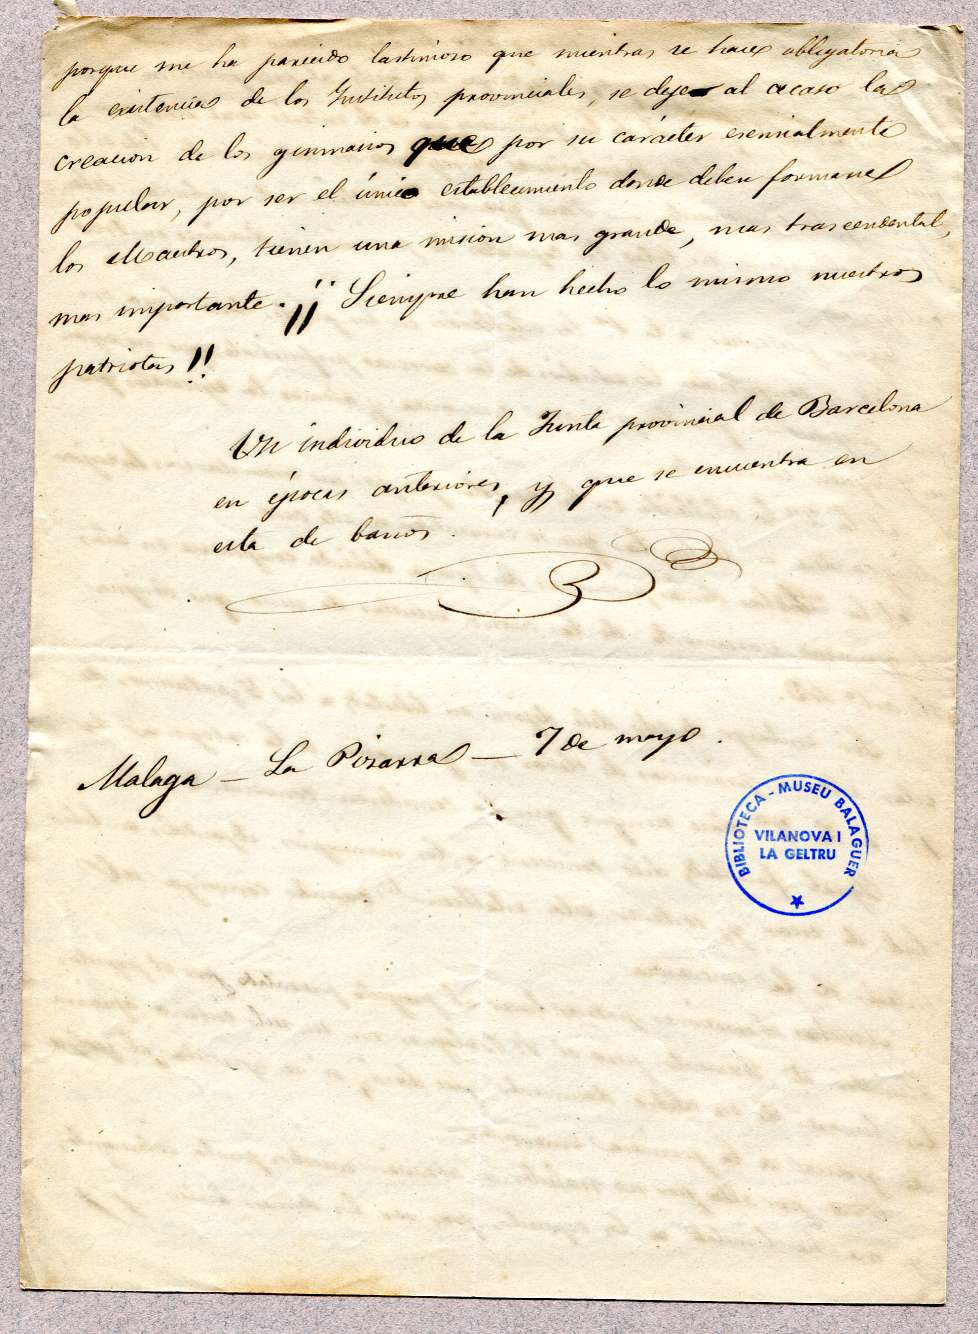 porque me ha parecido lastimoso que mientras se hace obligatoria
la existencia de los Institutos provinciales, se deje al acaso la
creacion de los gimnasios que por su carácter esencialmente
popular, por ser el único establecimiento donde deben formarse
los Maestros, tienen una mision mas grande, mas trascendental,
mas importante. ¡¡ Siempre han hecho lo mismo nuestros
patriotas!!
Un individuo de la Junta provincial de Barcelona
en épocas anteriores, y que se encuentra en
esta de baños.
Malaga — La Pizarra — 7 de mayo.
BIBLIOTECA - MUSEU BALAGUER
VILANOVA I
LA GELTRU